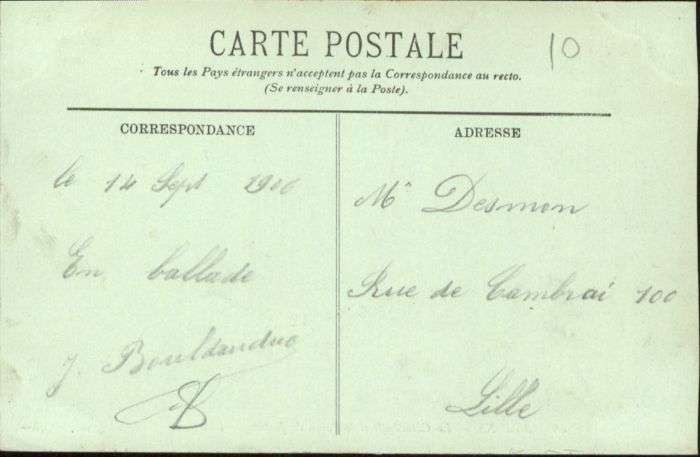 CARTE POSTALE
10
Tous les Pays étrangers n'acceptent pas la Correspondance au recto.
(Se renseigner à la Poste).
CORRESPONDANCE
le 14 Sept 1906
En ballade
J.
ADRESSE
Mr Desmon
Rue de Cambrai 100
Lille